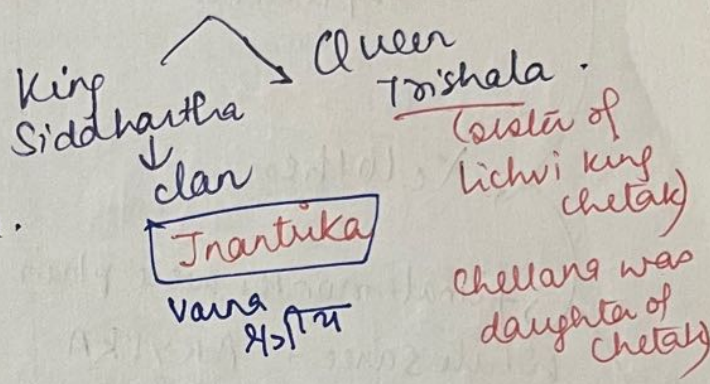 King
Siddhartha
clan
Jnantrika
Varna
क्षत्रिय
Queen
Trishala .
(sister of
Lichvi king
chetak)
Chellana was
daughter of
Chetak)